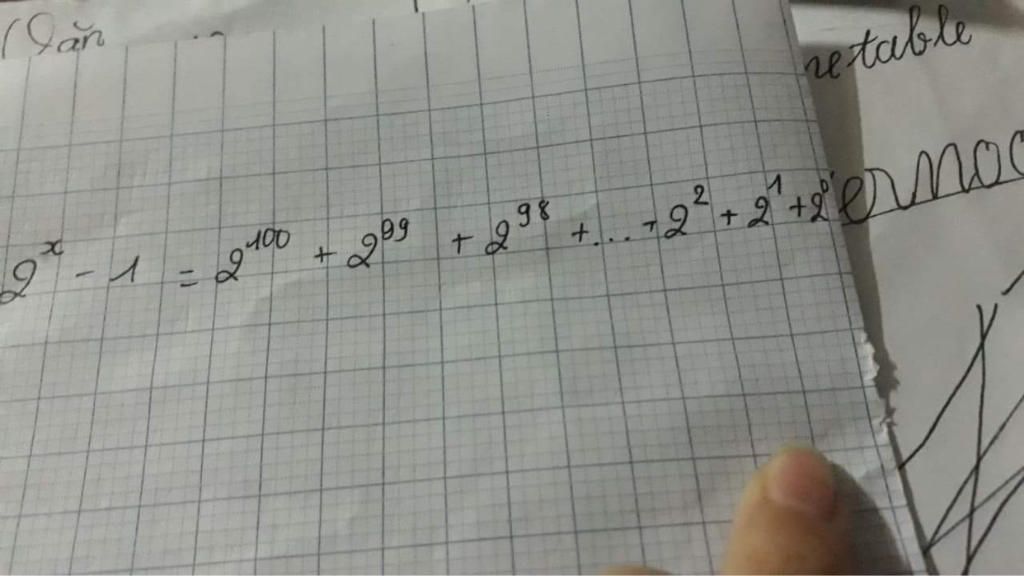 (Dăn
netable
ermoc
2^x - 1 = 2^100 + 2^99 + 2^98 + ... + 2^2 + 2^1 + 2^0